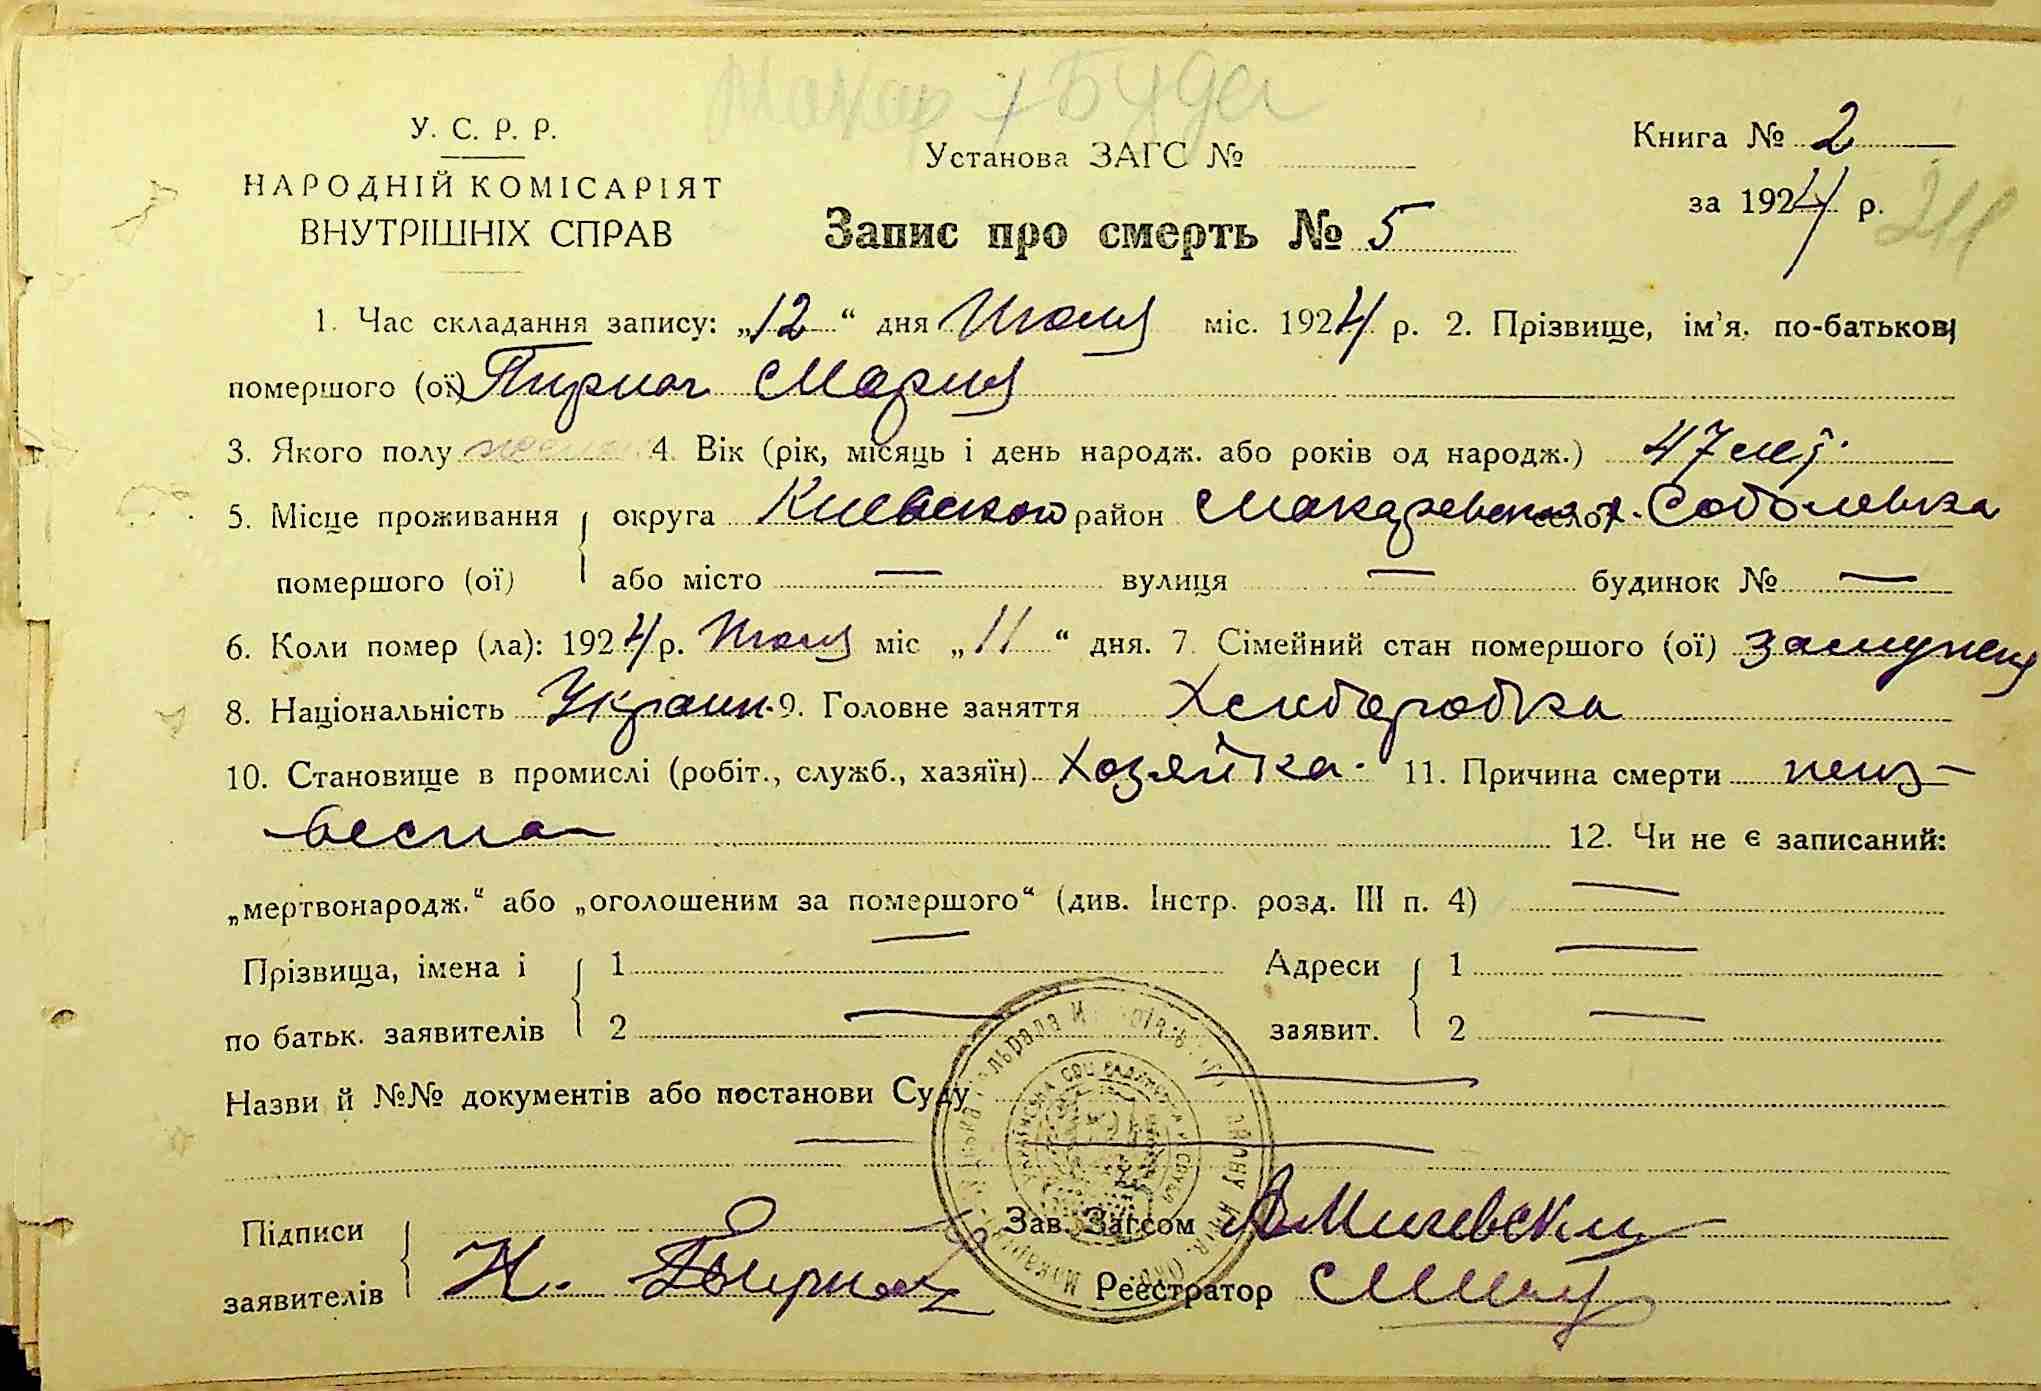 Макар Буда
У. С. Р. Р.
НАРОДНІЙ КОМІСАРІЯТ
ВНУТРІШНІХ СПРАВ
Установа ЗАГС №
Запис про смерть № 5
Книга № 2
за 1924 р.
211
1. Час складання запису: „12“ дня Июля міс. 1924 р. 2. Прізвище, ім'я, по-батькові
помершого (ої) Пирног Мария
3. Якого полу женск 4. Вік (рік, місяць і день народж. або років од народж.) 47 лет.
5. Місце проживання округа Киевского район Макаревск село х. Соболевка
помершого (ої) або місто — вулиця — будинок № —
6. Коли помер (ла): 1924 р. Июля міс „11“ дня. 7. Сімейний стан помершого (ої) замужняя
8. Національність Украин. 9. Головне заняття Хлеборобка
10. Становище в промислі (робіт., служб., хазяїн) Хозяйка. 11. Причина смерти неиз-
вестна 12. Чи не є записаний:
„мертвонародж.“ або „оголошеним за помершого“ (див. Інстр. розд. III п. 4) —
Прізвища, імена і 1 — Адреси 1 —
по батьк. заявителів 2 — заявит. 2 —
Назви й №№ документів або постанови Суду —
—
Підписи Зав. Загсом
заявителів Н. Реєстратор